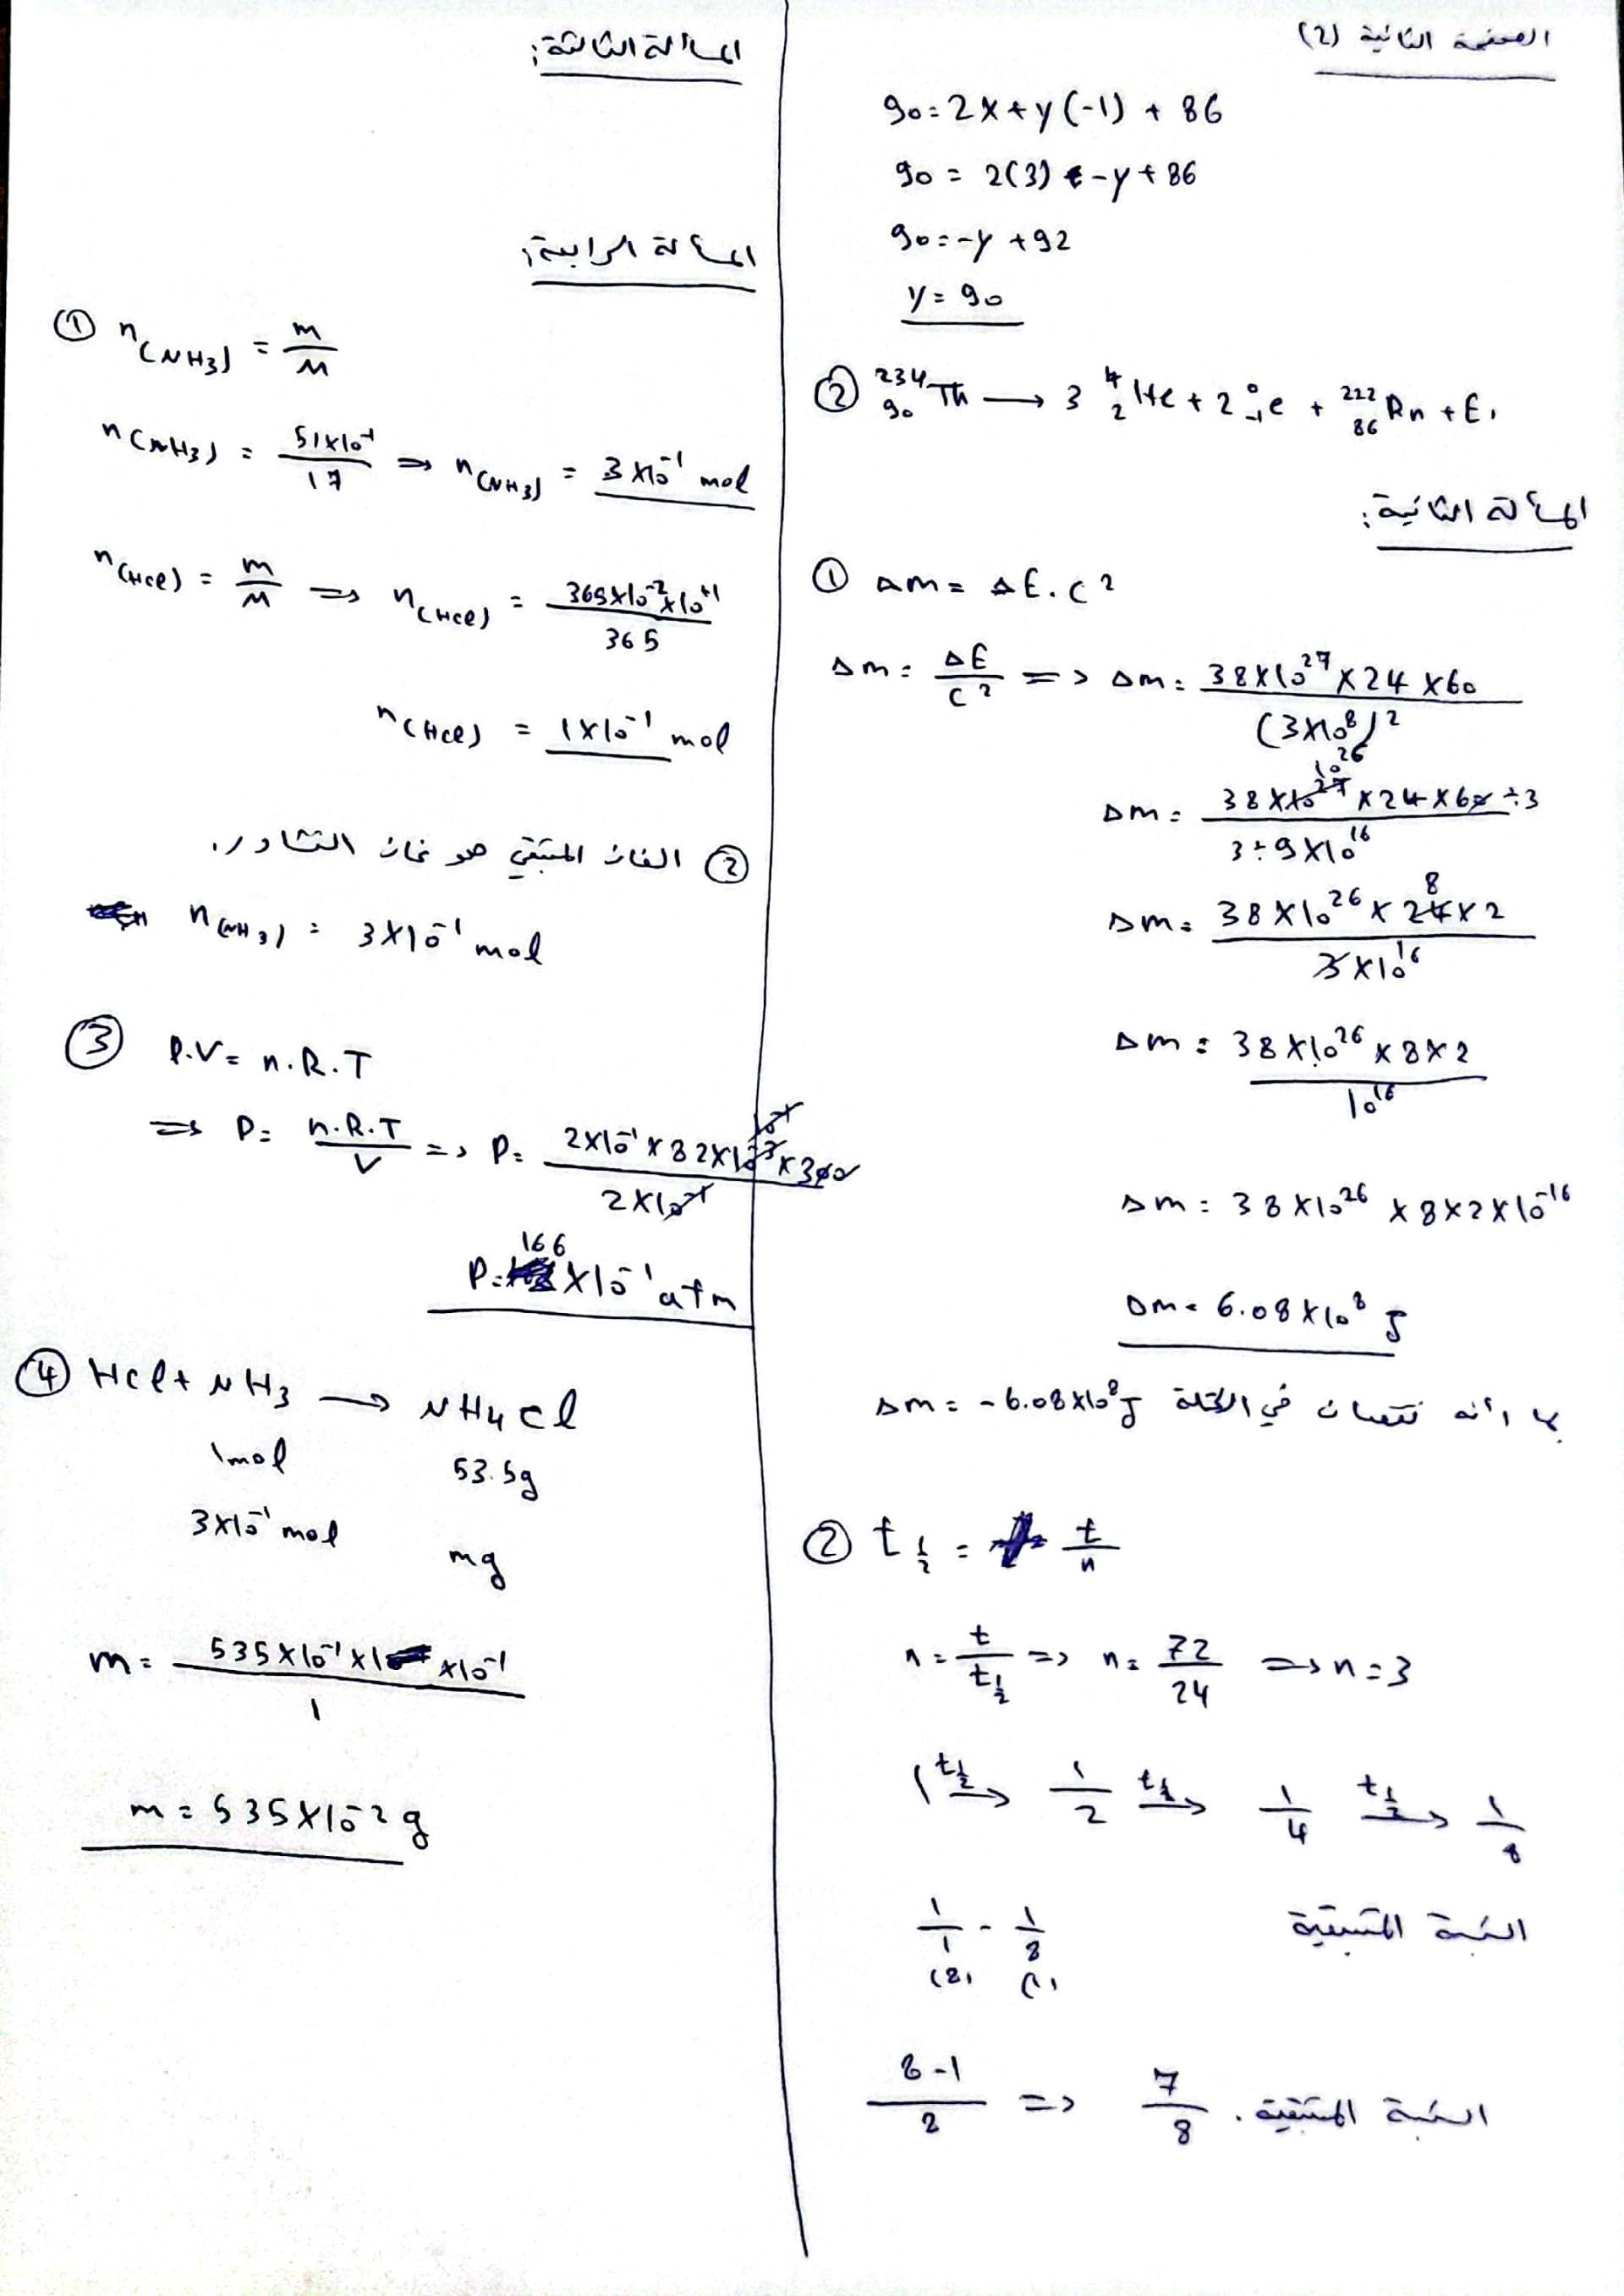 الصفحة الثانية (2)
90 = 2x + y(-1) + 86
90 = 2(3) - y + 86
90 = -y + 92
y = 90
② ²³⁴₉₀Th → 3 ⁴₂He + 2 ⁰₋₁e + ²²²₈₆Rn + E.
المسألة الثانية:
① Δm = ΔE . C²
Δm = ΔE/C² => Δm = 38×10²⁷ × 24 × 60 / (3×10⁸)²
Δm = 38×10²⁷ 10²⁶ × 24 × 60 ÷3 / 3÷9×10¹⁶
Δm = 38×10²⁶ × 24 8 × 2 / 3×10¹⁶
Δm = 38×10²⁶ × 8×2 / 10¹⁶
Δm = 38×10²⁶ × 8×2×10⁻¹⁶
Δm = 6.08×10⁸ g
بما أنه نقصان في الكتلة Δm = -6.08×10⁸ g
② t½ = t/n
n = t/t½ => n = 72/24 => n = 3
1 t½→ 1/2 t½→ 1/4 t½→ 1/8
1/1 - 1/8 النسبة المتبقية
(8) (1)
8-1/8 => 7/8 النسبة المتبقية.
المسألة الثالثة:
المسألة الرابعة:
① n(NH3) = m/M
n(NH3) = 51×10⁻¹/17 => n(NH3) = 3×10⁻¹ mol
n(HCl) = m/M => n(HCl) = 365×10⁻²×10⁺¹/365
n(HCl) = 1×10⁻¹ mol
② الغاز المتبقي هو غاز النشادر.
n(NH3) = 3×10⁻¹ mol
③ P.V = n.R.T
=> P = n.R.T/V => P = 2×10⁻¹ × 82×10⁻³ 10⁻¹ × 300 / 2×10⁻¹
P = 166 ×10⁻¹ atm
④ HCl + NH3 → NH4Cl
1mol 53.5g
3×10⁻¹ mol mg
m = 535×10⁻¹×1 ×10⁻¹ / 1
m = 535×10⁻² g